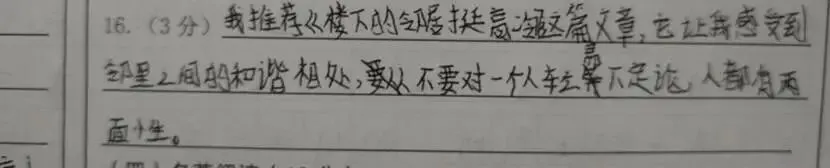 16. (3分) 我推荐《楼下的邻居挺高冷》这篇文章,它让我感受到
邻里之间的和谐相处,要从不要对一个人轻易下定论,人都有两
面性。